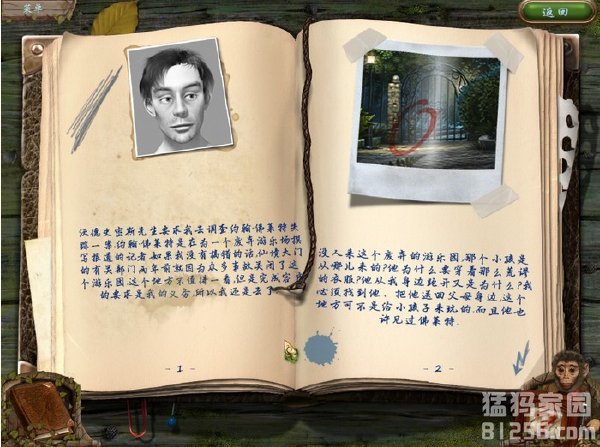 菜单
返回
沃德史密斯先生要求我去调查约翰.佛莱特失
踪一事.约翰.佛莱特是在为一个废弃游乐场撰
写报道的记者.如果我没有搞错的话,仙境大门
的有关部门两年前就因为众多事故关闭了这
个游乐园.这个地方不值得一看,但是完成客户
的要求是我的义务,所以我还是去了.
- 1 -
没人来这个废弃的游乐园.那个小孩是
从哪儿来的?他为什么要穿着那么荒谬
的衣服?他从我身边跑开又是为什么?我
必须找到他，把他送回父母身边.这个
地方可不是给小孩子来玩的,而且他也
许见过佛莱特.
- 2 -
猛犸家园
81256.com